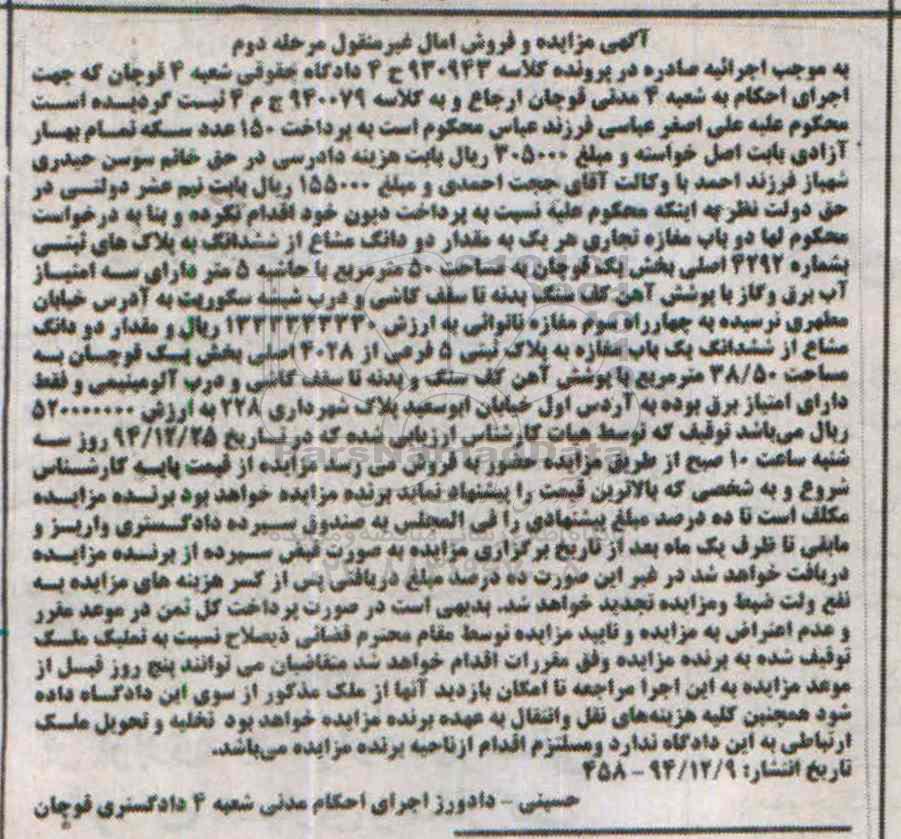 آگهی مزایده و فروش امال غیرمنقول مرحله دوم
به موجب اجرائیه صادره در پرونده کلاسه ۹۳۰۹۴۳ ح ۴ دادگاه حقوقی شعبه ۴ قوچان که جهت
اجرای احکام به شعبه ۴ مدنی قوچان ارجاع و به کلاسه ۹۴۰۰۷۹ ج م ۴ ثبت گردیده است
محکوم علیه علی اصغر عباسی فرزند عباس محکوم است به پرداخت ۱۵۰ عدد سکه تمام بهار
آزادی بابت اصل خواسته و مبلغ ۳۰۵۰۰۰ ریال بابت هزینه دادرسی در حق خانم سوسن حیدری
شهباز فرزند احمد با وکالت آقای حجت احمدی و مبلغ ۱۵۵۰۰۰ ریال بابت نیم عشر دولتی در
حق دولت نظر به اینکه محکوم علیه نسبت به پرداخت دیون خود اقدام نکرده و بنا به درخواست
محکوم لها دو باب مغازه تجاری هر یک به مقدار دو دانگ مشاع از ششدانگ به پلاک های ثبتی
بشماره ۴۲۹۲ اصلی بخش یک قوچان به مساحت ۵۰ مترمربع با حاشیه ۵ متر دارای سه امتیاز
آب برق وگاز با پوشش آهن کف سنگ بدنه تا سقف کاشی و درب شیشه سکوریت به آدرس خیابان
مطهری نرسیده به چهارراه سوم مغازه نانوائی به ارزش ۱۳۳۳۳۳۳۳۳۰ ریال و مقدار دو دانگ
مشاع از ششدانگ یک باب مغازه به پلاک ثبتی ۵ فرعی از ۴۰۲۸ اصلی بخش یک قوچان به
مساحت ۳۸/۵۰ مترمربع با پوشش آهن کف سنگ و بدنه تا سقف کاشی و درب آلومینیمی و فقط
دارای امتیاز برق بوده به آردس اول خیابان ابوسعید پلاک شهرداری ۲۲۸ به ارزش ۵۲۰۰۰۰۰۰۰
ریال می‌باشد توقیف که توسط هیات کارشناس ارزیابی شده که در تاریخ ۹۴/۱۲/۲۵ روز سه
شنبه ساعت ۱۰ صبح از طریق مزایده حضور به فروش می رسد مزایده از قیمت پایه کارشناس
شروع و به شخصی که بالاترین قیمت را پیشنهاد نماید برنده مزایده خواهد بود برنده مزایده
مکلف است تا ده درصد مبلغ پیشنهادی را فی المجلس به صندوق سپرده دادگستری واریز و
مابقی تا ظرف یک ماه بعد از تاریخ برگزاری مزایده به صورت قبض سپرده از برنده مزایده
دریافت خواهد شد در غیر این صورت ده درصد مبلغ دریافتی پس از کسر هزینه های مزایده به
نفع ولت ضبط ومزایده تجدید خواهد شد. بدیهی است در صورت پرداخت کل ثمن در موعد مقرر
و عدم اعتراض به مزایده و تایید مزایده توسط مقام محترم قضائی ذیصلاح نسبت به تملیک ملک
توقیف شده به برنده مزایده وفق مقررات اقدام خواهد شد متقاضیان می توانند پنج روز قبل از
موعد مزایده به این اجرا مراجعه تا امکان بازدید آنها از ملک مذکور از سوی این دادگاه داده
شود همچنین کلیه هزینه‌های نقل وانتقال به عهده برنده مزایده خواهد بود تخلیه و تحویل ملک
ارتباطی به این دادگاه ندارد ومستلزم اقدام ازناحیه برنده مزایده می‌باشد.
تاریخ انتشار: ۹۴/۱۲/۹ - ۴۵۸
حسینی - دادورز اجرای احکام مدنی شعبه ۴ دادگستری قوچان
ParsNamadData